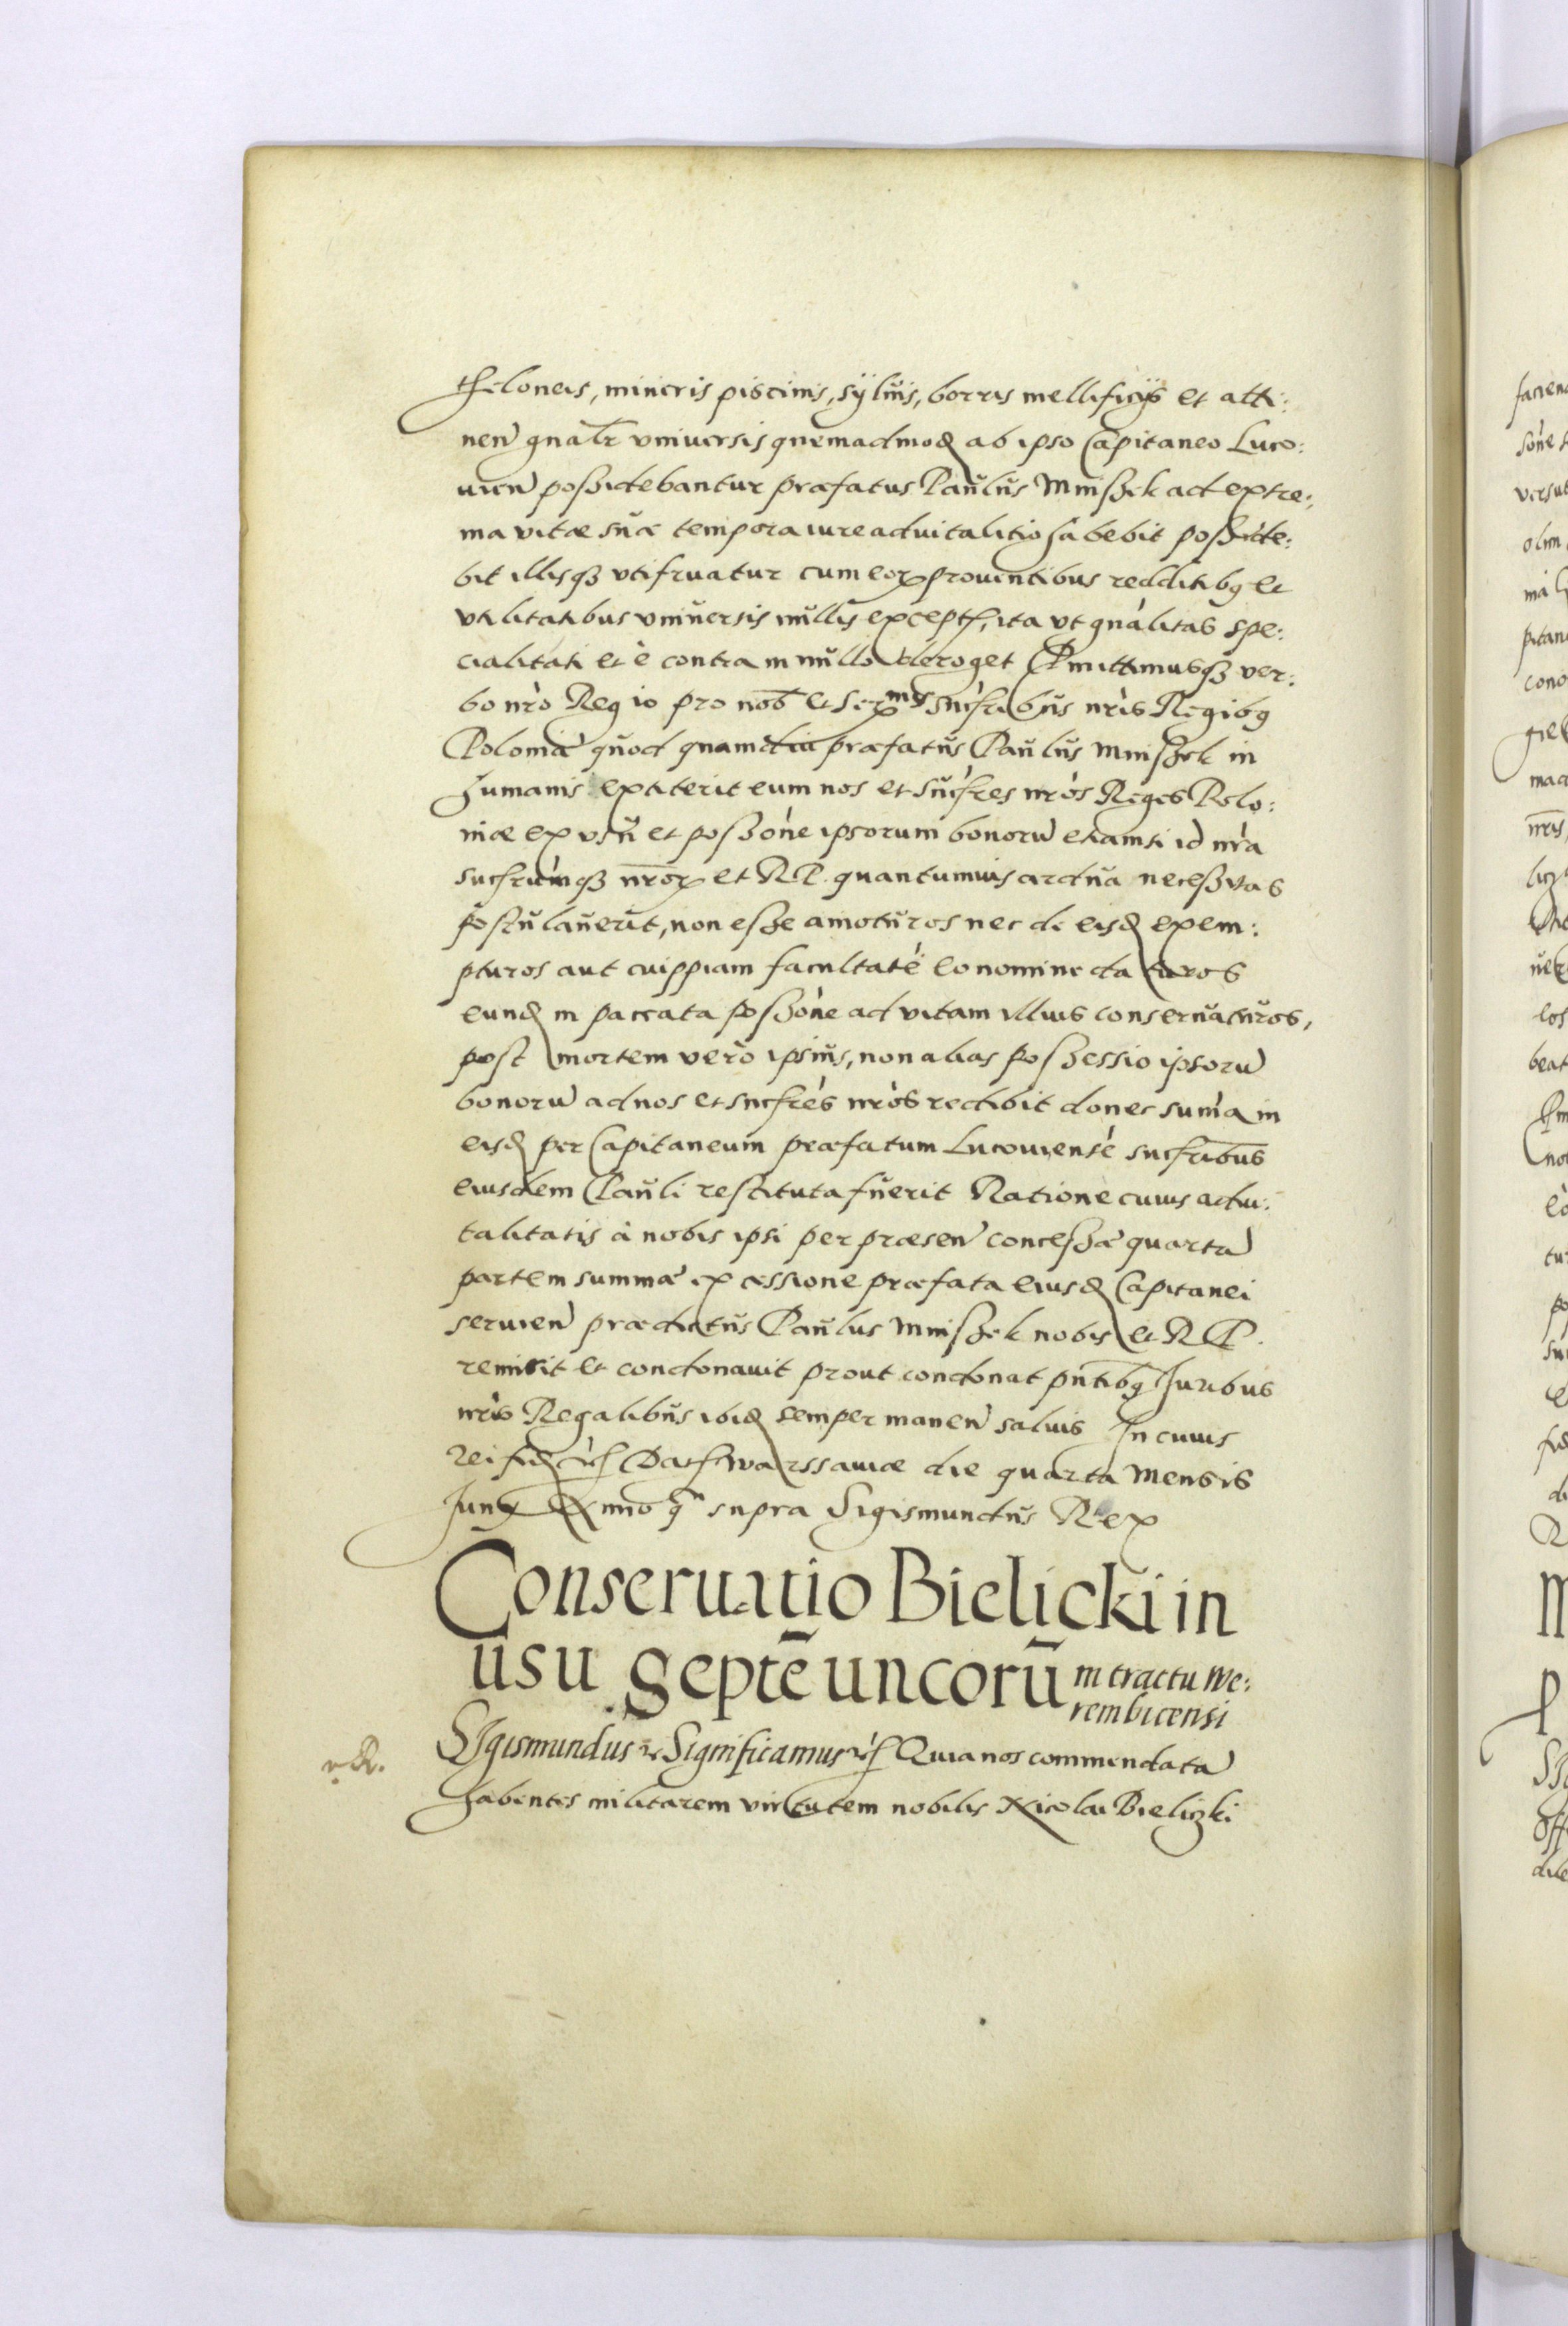 theloneis, mineris piscinis, sÿluis, borris mellificijs et atti:
nen gnalr vniuersis quemadmod ab ipso Capitaneo Luco:
uien possidebantur præfatus Paulus Mnisʒek ad extre:
ma vitæ suæ tempora iure aduitalitio habebit posside:
bit illisqʒ vtifruatur cum eor prouentibus redditibq et
vtilitatibus vniuersis nullis except, ita vt gnàlitas spe:
cialitati et è contra in nullo deroget Pmittimusqʒ ver:
bo nrò Regio pro nob et Sermis sucfribus nris Regibq
Poloniæ quod quamdiu præfatus Paulus Mnisʒek in
humanis extiterit eum nos et sucfres nròs Reges Polo:
niæ ex usu et possone ipsorum bonorũ etiamsi id nrà
sucfrumqʒ nror et R P. quantumuis ardua necessitas
postulauerit, non esse amoturos nec de eisd exem:
pturos aut cuippiam facultatē eo nomine daturos
eund in paccata possone ad vitam illius conseruaturos,
post mortem verò ipsius, non alias possessio ipsorũ
bonorũ ad nos et sucfres nròs redibit donec sumà in
eisd per Capitaneum præfatum Lucouiensē sucfribus
eiusdem Pauli restituta fuerit Ratione cuius adui:
talitatis à nobis ipsi per præsen concessæ quartã
partem summæ ex cessione præfata eiusd Capitanei
seruien prædictus Paulus Mnisʒek nobis et R P.
remisit et condonauit prout condonat pntibq Iuribus
nris Regalibus ibid semper manen saluis In cuius
rei fid etc Dat Warssauiæ die quarta Mensis
Iunÿ Anno q supra Sigismundus Rex
Conseruatio Bielicki in
usu septē uncorũ in tractu We:
rembicensi
Sigismundus etc Significamus etc Quia nos commendatã
habentes militarem virtutem nobilis Nicolai Bieliczki